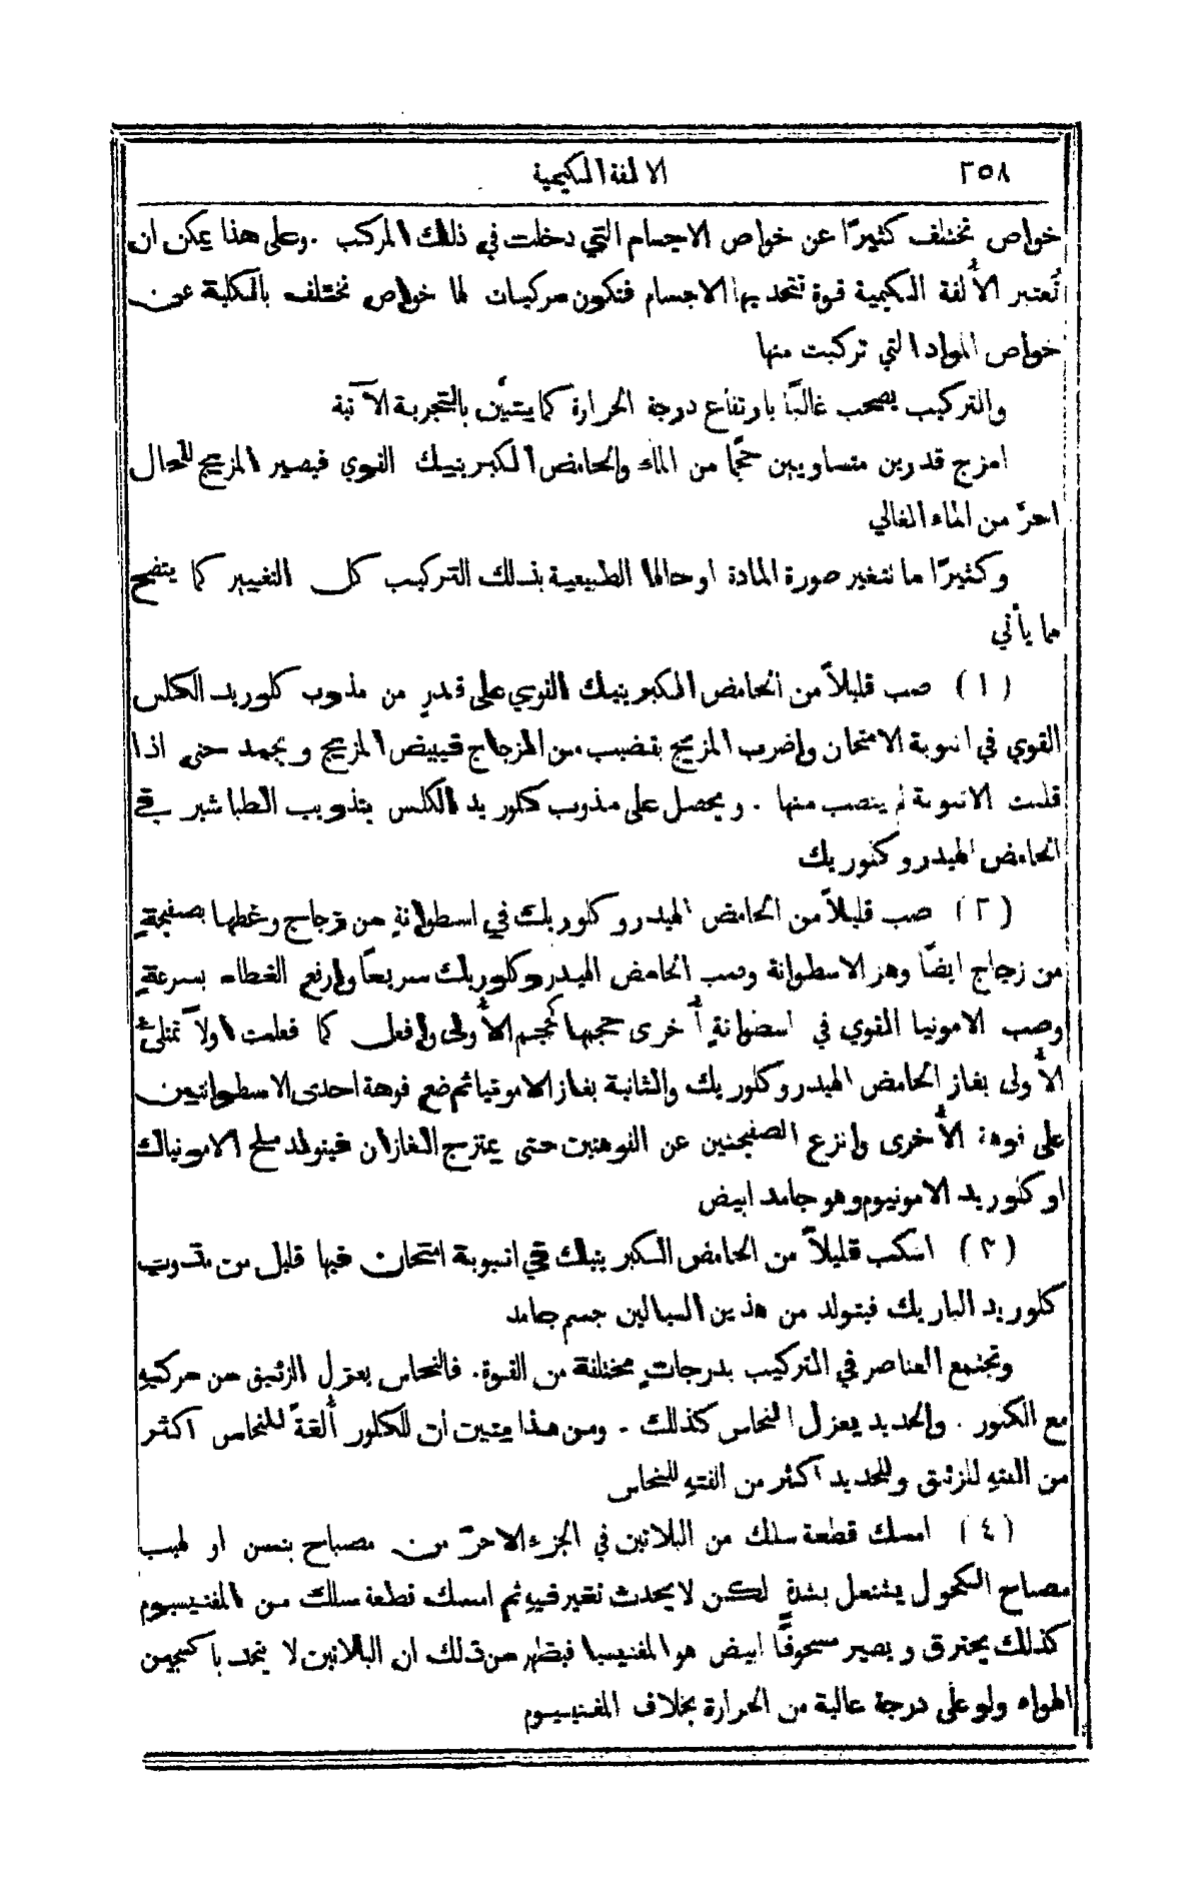 ٢٥٨ الالفة الكيمية
خواص تختلف كثيرًا عن خواص الاجسام التي دخلت في ذلك المركب . وعلى هذا يمكن ان
تُعتبر الأُلفة الكيمية قوة تتحد بها الاجسام فتكون مركبات لها خواص تختلف بالكلية عن
خواص المواد التي تركبت منها
والتركيب يصحب غالبًا بارتفاع درجة الحرارة كما يتبيَّن بالتجربة الآتية
امزج قدرين متساويين حجمًا من الماء والحامض الكبريتيك القوي فيصير المزيج للحال
احرّ من الماء الغالي
وكثيرًا ما تتغير صورة المادة او حالها الطبيعية بذلك التركيب كل التغيير كما يتضح
مما يأتي
(١) صب قليلاً من الحامض الكبريتيك القوي على قدرٍ من مذوب كلوريد الكلس
القوي في انبوبة الامتحان واضرب المزيج بقضيب من الزجاج فيبيض المزيج ويجمد حتى اذا
قلبت الانبوبة لم ينصب منها . ويحصل على مذوب كلوريد الكلس بتذويب الطباشير في
الحامض الهيدروكلوريك
(٢) صب قليلاً من الحامض الهيدروكلوريك في اسطوانةٍ من زجاج وغطها بصفيحةٍ
من زجاج ايضًا وهز الاسطوانة وصب الحامض الهيدروكلوريك سريعًا وارفع الغطاء بسرعةٍ
وصب الامونيا القوي في اسطوانةٍ أُخرى حجمها كحجم الأُولى وافعل كما فعلت اولاً تمتلئُ
الأُولى بغاز الحامض الهيدروكلوريك والثانية بغاز الامونيا ثم ضع فوهة احدى الاسطوانتين
على فوهة الأُخرى وانزع الصفيحتين عن الفوهتين حتى يمتزج الغازان فيتولد ملح الامونياك
او كلوريد الامونيوم وهو جامد ابيض
(٣) اسكب قليلاً من الحامض الكبريتيك في انبوبة امتحان فيها قليل من مذوب
كلوريد الباريك فيتولد من هذين السيالين جسم جامد
وتجتمع العناصر في التركيب بدرجاتٍ مختلفة من القوة . فالنحاس يعزل الزئبق من مركبهِ
مع الكلور . والحديد يعزل النحاس كذلك . ومن هذا يتبين ان للكلور أُلفةً للنحاس اكثر
من الفتهِ للزئبق وللحديد اكثر من الفتهِ للنحاس
(٤) امسك قطعة سلك من البلاتين في الجزء الاحرّ من مصباح بنسن او لهيب
مصباح الكحول يشتعل بشدةٍ لكن لا يحدث تغير فيهِ ثم امسك قطعة سلك من المغنيسيوم
كذلك يحترق ويصير مسحوقًا ابيض هو المغنيسيا فيظهر من ذلك ان البلاتين لا يتحد باكسجين
الهواء ولو على درجة عالية من الحرارة بخلاف المغنيسيوم